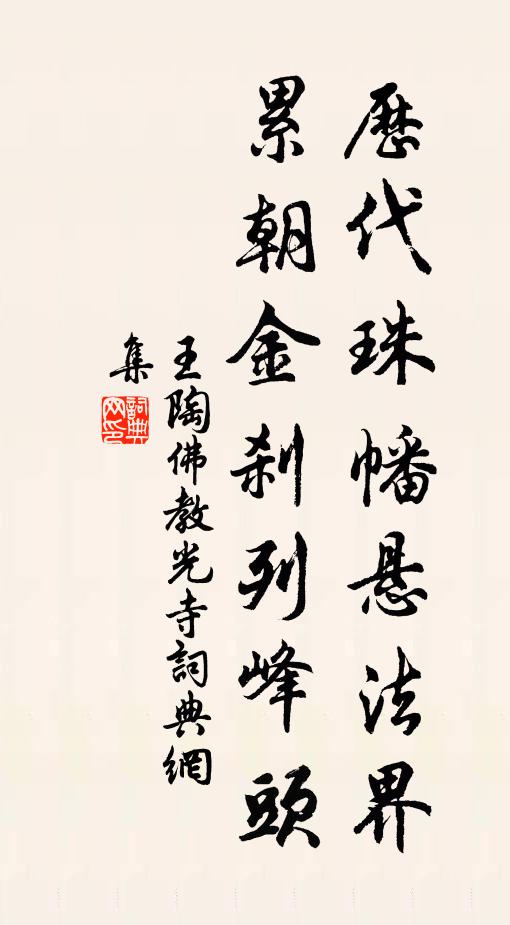 歷代珠幡悬法界
累朝金刹列峰頭
王陶佛教光寺詞典網
集
詞典网印